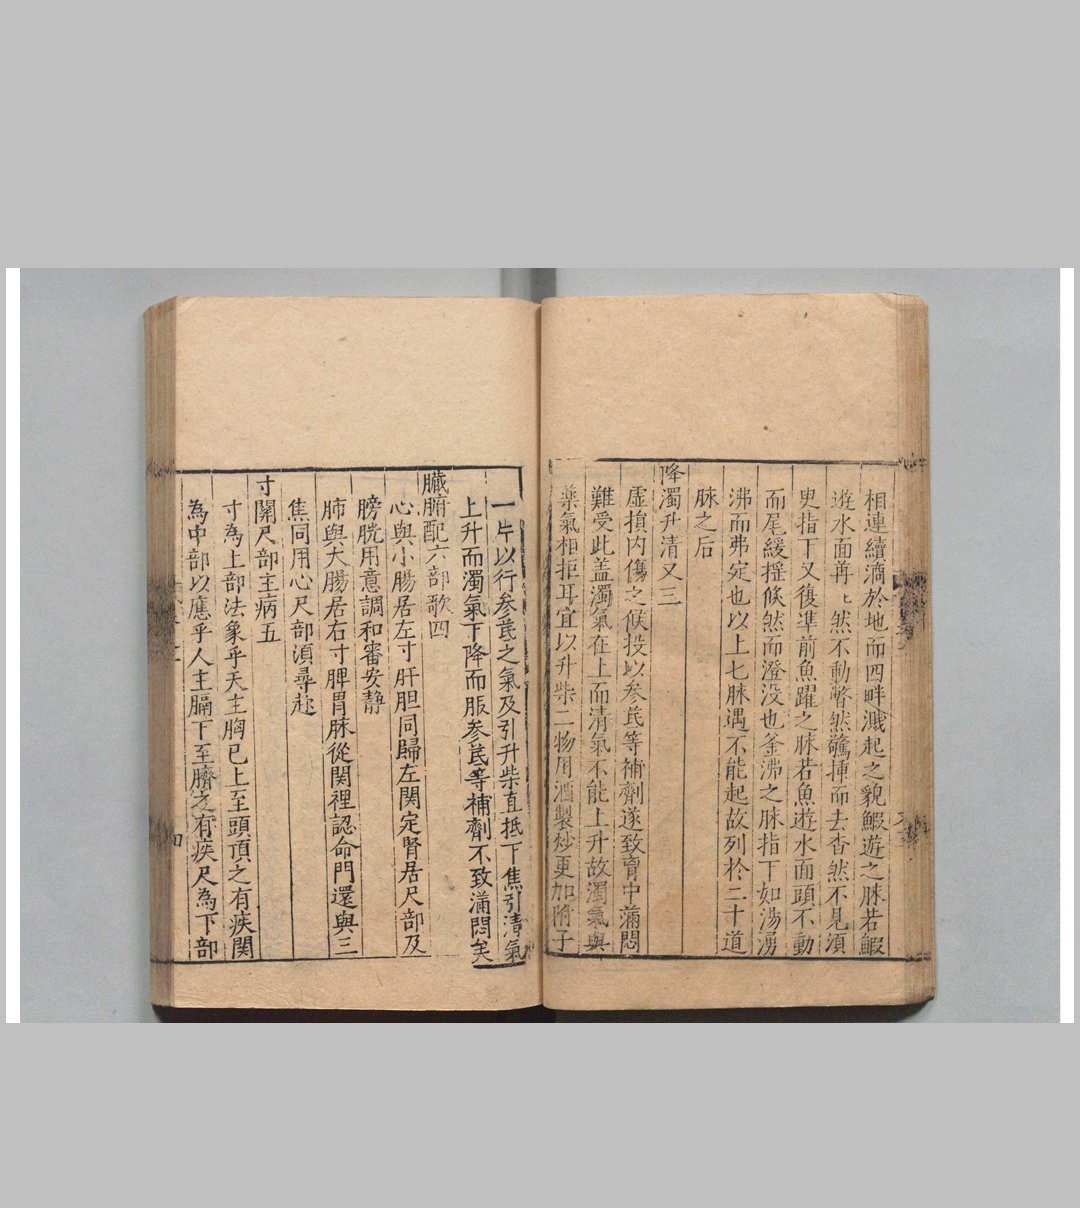 相連續滴於地而四畔濺起之貌鰕遊之脉若鰕
遊水面苒〻然不動瞥然驚掉而去杳然不見湏
臾指丁又復準前魚躍之脉若魚遊水面頭不動
而尾緩揺倏然而澄没也釜沸之脉指下如湯湧
沸而弗定也以上七脉遇不能起故列於二十道
脉之后
降濁升清又三
虚損内傷之候投以参芪等補劑遂致膏中蒲悶
難受此盖濁氣在上而清氣不能上升故濁氣與
藥氣相拒耳宜以升柴二物用酒製炒更加附子
一片以行参芪之氣及引升柴直抵下焦引清氣
上升而濁氣下降而服参芪等補劑不致蒲悶矣
臓腑配六部歌四
心與小腸居左寸肝胆同歸左関定腎居尺部及
膀胱用意調和審安静
肺與大腸居右寸脾胃脉從関裡認命門還與三
焦同用心尺部湏尋趂
寸關尺部主病五
寸為上部法象乎天主胸已上至頭頂之有疾関
為中部以應乎人主膈下至臍之有疾尺為下部
四